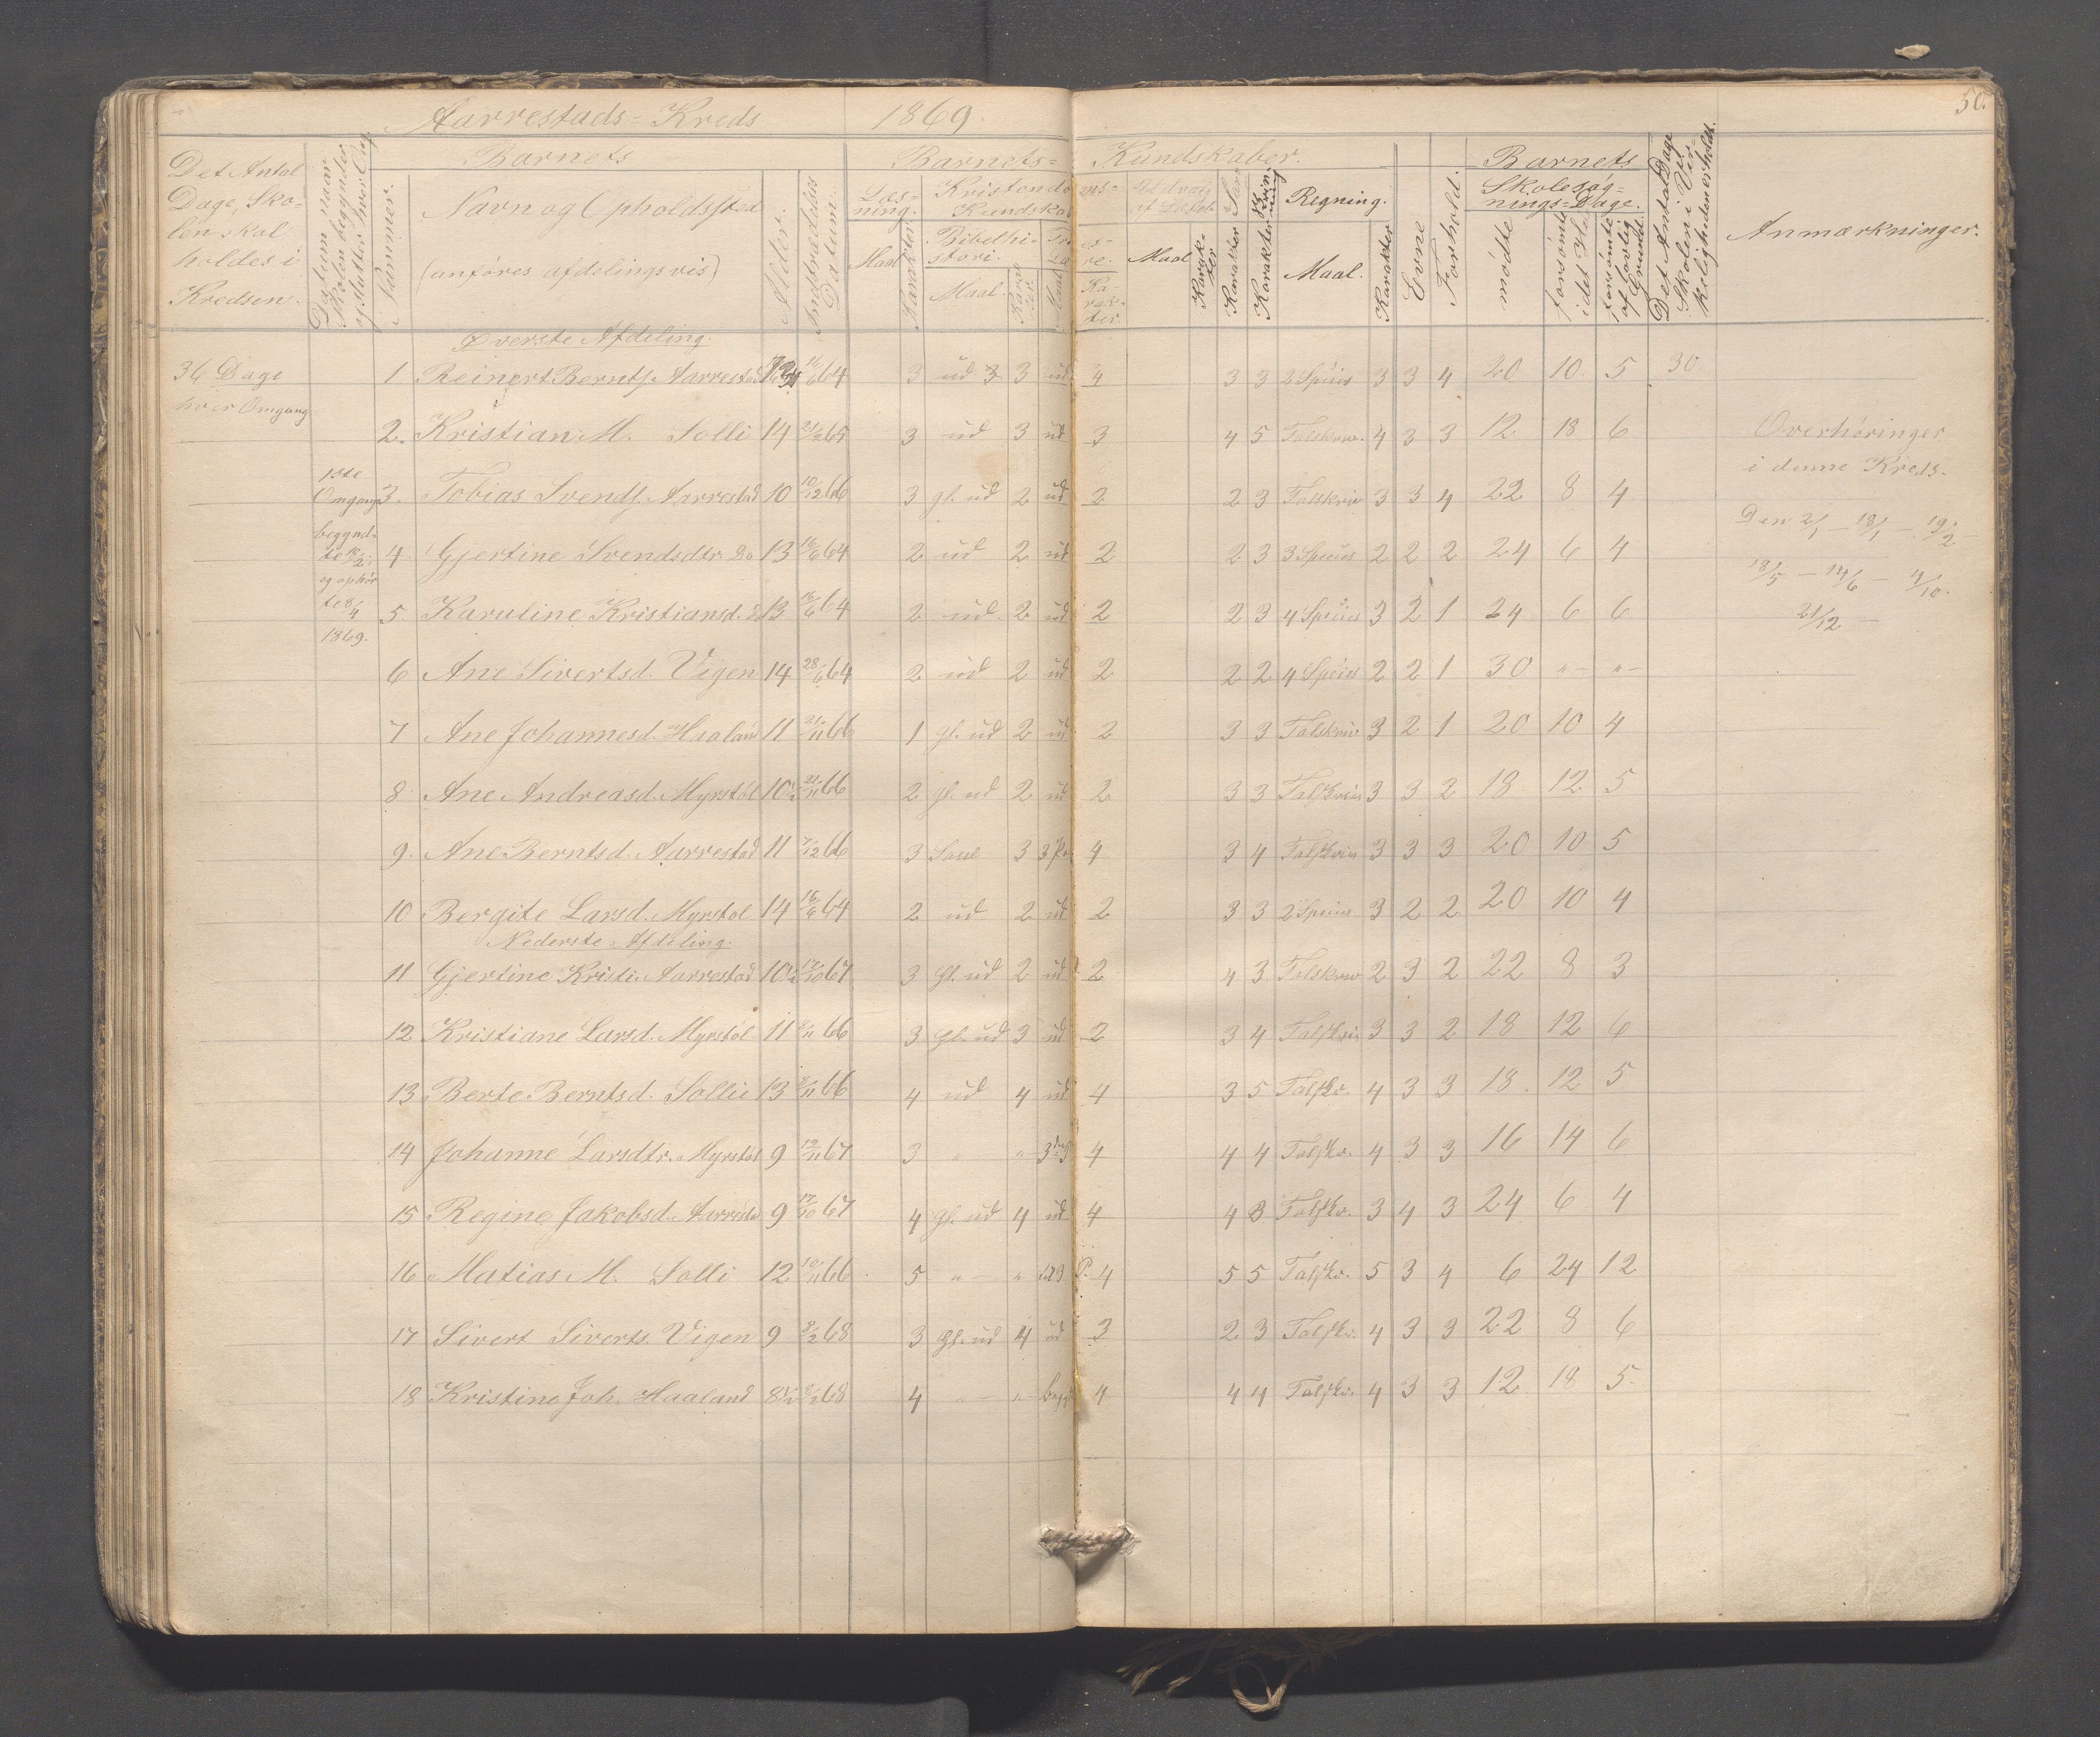 50.
Aarrestads=Kreds 1869.
Det Antal Dage, Skolen skal holdes i Kredsen.
Datum naar Skolen begynder og slutter hver Omg.
Nummer.
Barnets
Navn og Opholdssted
(anføres afdelingsvis)
Alder.
Indtrædelses Datum.
Barnets= Kundskaber.
Læsning. Maal Karakter
Kristendoms= Kundskab
Bibelhistorie. Maal. Karakter
Maal Karakter
Udvalg af Læseb. Maal Karakter
Sang Karakter
Skrivning Karakter
Regning. Maal. Karakter
Evne
Forhold.
Barnets
Skolesøgnings=Dage.
mødte
forsømte i det Hele
forsømte af lovlig Grund.
Det Antal Dage Skolen i Virkeligheden er holdt.
Anmærkninger.
Øverste Afdeling.
36 Dage 1 Reinert Bernts. Aarrestad 16/6 64 3 ud 3 ud 4 3 3 2 Speÿies 3 3 4 20 10 5 30
hver Omgang
2. Kristian M. Solli 14 21/2 65 3 ud 3 ud 3 4 5 Talskriv. 4 3 3 12 18 6 Overhøringer
i denne Kreds.
1ste Omgang 3. Tobias Svends. Aarrestad 10 10/12 66 3 gl. ud 2 ud 2 2 3 Talskriv 3 3 4 22 8 4
Den 2/1 - 18/1 - 19/2 -
begyndte og ophørte 8/4 1869.
4 Gjertine Svendsdtr. Do 13 16/6 64 2 ud 2 ud 2 2 3 3 Species 2 2 2 24 6 4
18/5 - 14/6 - 4/10.
5 Karuline Kristiansd. Do 13 16/6 64 2 ud 2 ud 2 2 3 4 Species 3 2 1 24 6 6
21/12 -
6 Ane Sivertsd. Vigen 14 28/6 64 2 ud 2 ud 2 2 2 4 Species 2 2 1 30 " "
7 Ane Johannesd. Haaland 11 21/11 66 1 gl. ud 2 ud 2 3 3 Talskriv 3 2 1 20 10 4
8 Ane Andreasd. Myrstøl 10½ 21/11 66 2 gl. ud 2 ud 2 3 3 Talskriv 3 3 2 18 12 5
9. Ane Berntsd. Aarrestad 11 7/12 66 3 Saul 3 3 P. 4 3 4 Talskriv 3 3 3 20 10 5
10 Bergite Larsd. Myrstøl 14 16/6 64 2 ud 2 ud 2 3 3 2 Species 3 2 2 20 10 4
Nederste Afdeling.
11 Gjertine Kristi. Aarrestad 10½ 17/10 67 3 gl. ud 2 ud 2 4 3 Talskriv 2 3 2 22 8 3
12 Kristiane Larsd. Myrstøl 11 8/11 66 3 gl. ud 3 ud 2 3 4 Talskriv 3 3 2 18 12 6
13 Berte Berntsd. Sollie 13 8/11 66 4 ud 4 ud 4 3 5 Talskr. 4 3 3 18 12 5
14 Johanne Larsdtr. Myrstøl 9 19/11 67 3 " " 4 4 4 Talskr. 4 3 3 16 14 6
15 Regine Jakobsd. Aarrestad 9 17/10 67 4 gl. ud 4 ud 4 4 3 Talskr. 3 4 3 24 6 4
16 Matias M. Solli 12 10/11 66 5 " " P. 4 5 5 Talskr. 5 3 4 6 24 12
17 Sivert Siverts. Vigen 9 8/2 68 3 gl. ud 4 ud 3 2 3 Talskr. 4 3 3 22 8 6
18 Kristine Joh. Haaland 8½ 8/2 68 4 " " 4 4 4 Talskr. 4 3 3 12 18 5